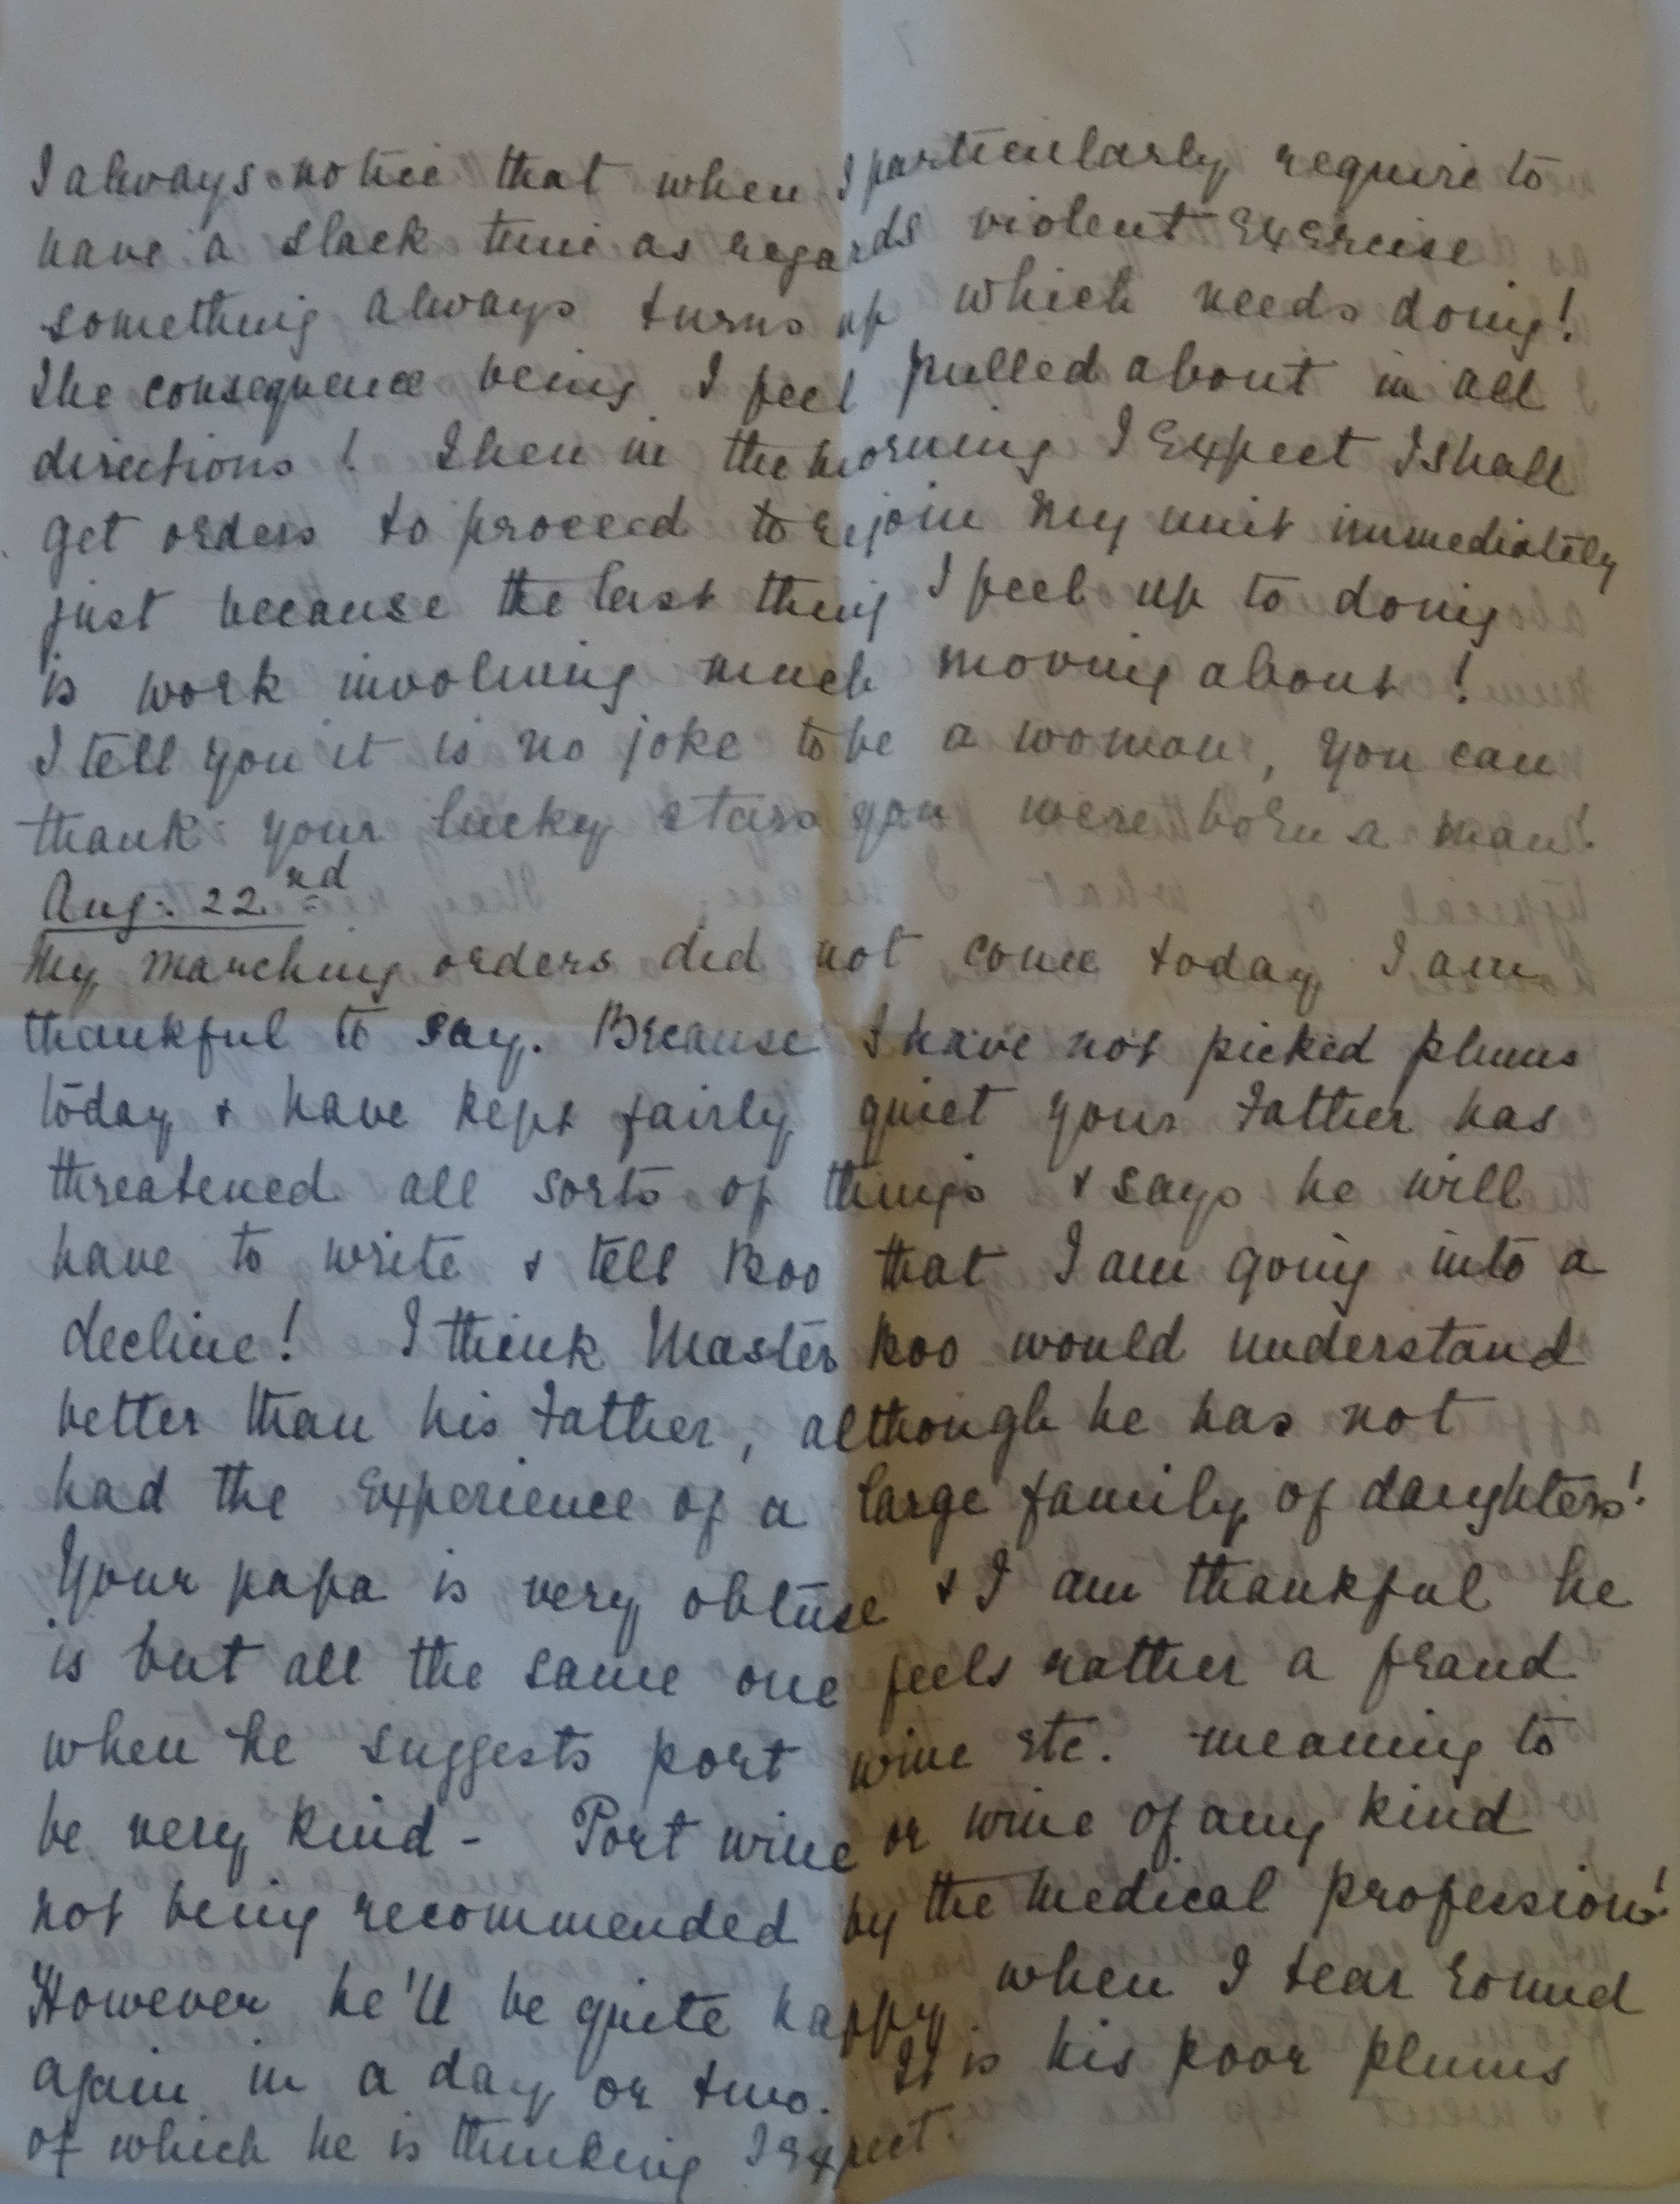 I always notice that when I particularly require to
have a slack time as regards violent exercise
something always turns up which needs doing!
The consequence being I feel pulled about in all
directions! Then in the morning I expect I shall
get orders to proceed to rejoin my unit immediately
just because the last thing I feel up to doing
is work involving much moving about!
I tell you it is no joke to be a woman, you can
thank your lucky stars you were born a man!
Aug: 22nd
My marching orders did not come today I am
thankful to say. Because I have not picked plums
today & have kept fairly quiet your Father has
threatened all sorts of things & says he will
have to write & tell Boo that I am going into a
decline! I think Master Boo would understand
better than his Father, although he has not
had the experience of a large family of daughters!
Your papa is very obtuse & I am thankful he
is but all the same one feels rather a fraud
when he suggests port wine etc. meaning to
be very kind - Port wine or wine of any kind
not being recommended by the medical profession!
However he'll be quite happy when I tear round
again in a day or two. It is his poor plums
of which he is thinking I expect.